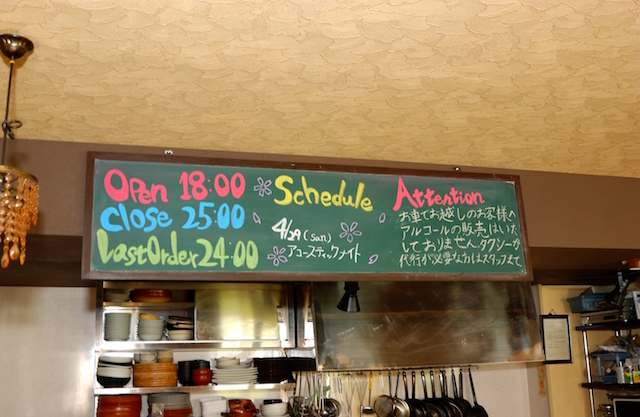 Open 18:00
Close 25:00
LastOrder 24:00
Schedule
4/29(sun)
アコースティックメイト
Attention
お車でお越しのお客様へ
アルコールの販売はいた
しておりません。タクシーか
代行が必要な方はスタッフまで